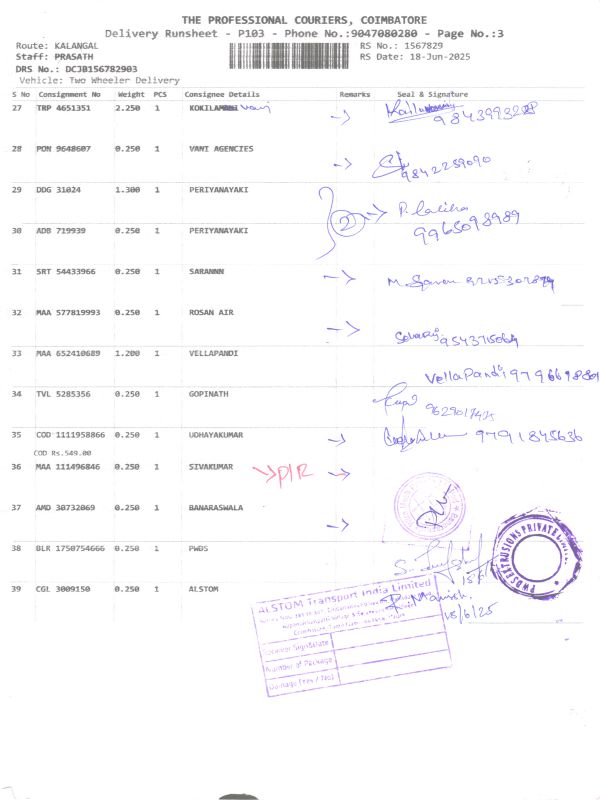 THE PROFESSIONAL COURIERS, COIMBATORE
Delivery Runsheet - P103 - Phone No.:9047080280 - Page No.:3
Route: KALANGAL RS No.: 1567829
Staff: PRASATH RS Date: 18-Jun-2025
DRS No.: DCJB156782903
Vehicle: Two Wheeler Delivery
S No Consignment No Weight PCS Consignee Details Remarks Seal & Signature
27 TRP 4651351 2.250 1
28 PON 9648607 0.250 1 VANI AGENCIES
9842259090
29 DDG 31024 1.300 1 PERIYANAYAKI
2
9965098989
30 ADB 719939 0.250 1 PERIYANAYAKI
31 SRT 54433966 0.250 1 SARANNN
32 MAA 577819993 0.250 1 ROSAN AIR
33 MAA 652410689 1.200 1 VELLAPANDI
VellaPandi
34 TVL 5285356 0.250 1 GOPINATH
35 COD 1111958866 0.250 1 UDHAYAKUMAR 9791845636
COD Rs.549.00
36 MAA 111496846 0.250 1 SIVAKUMAR
37 AMD 30732069 0.250 1 BANARASWALA
38 BLR 1750754666 0.250 1 PWDS
39 CGL 3009150 0.250 1 ALSTOM
ALSTOM Transport India Limited
Manish
18/6/25
Number of Package